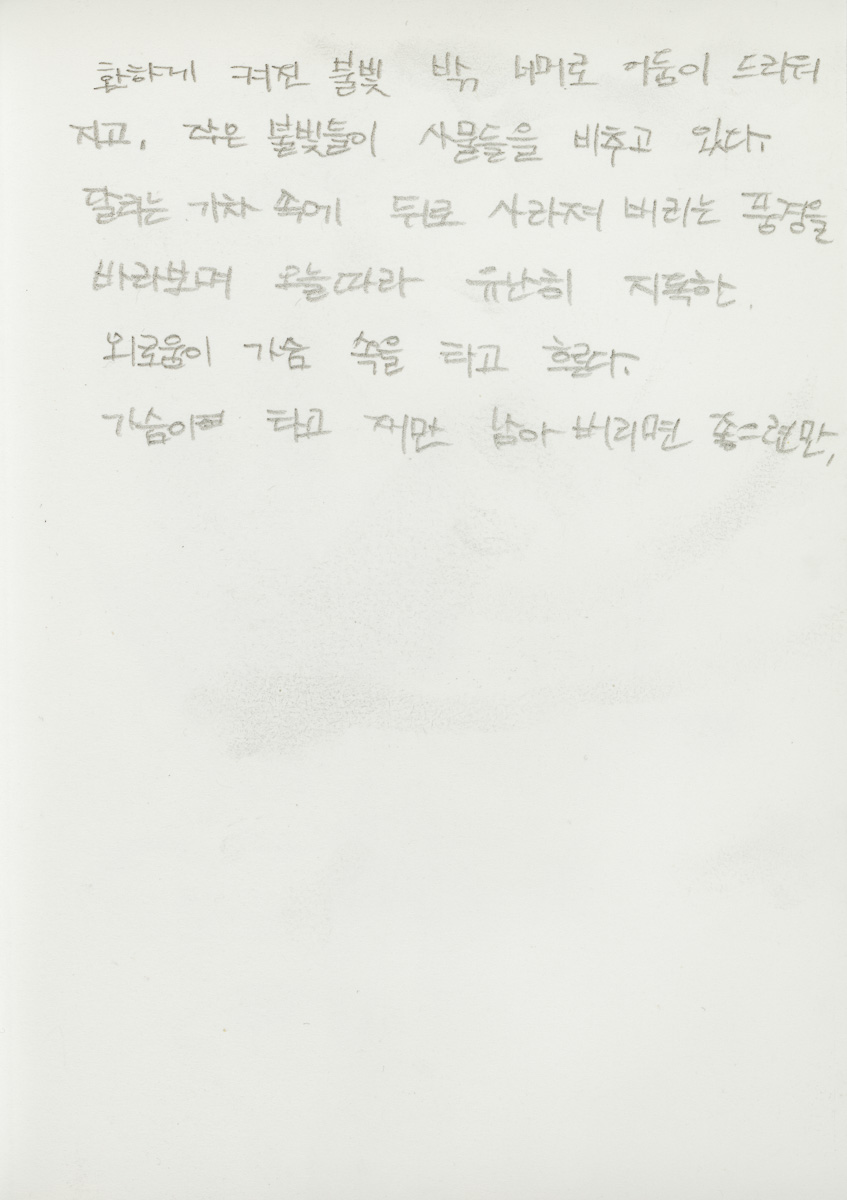 환하게 켜진 불빛 밖 너머로 어둠이 드리워
지고, 작은 불빛들이 사물들을 비추고 있다.
달리는 기차 속에 뒤로 사라져 버리는 풍경을
바라보며 오늘따라 유난히 지독한
외로움이 가슴 속을 타고 흐른다.
가슴이 타고 재만 남아 버리면 좋으련만,